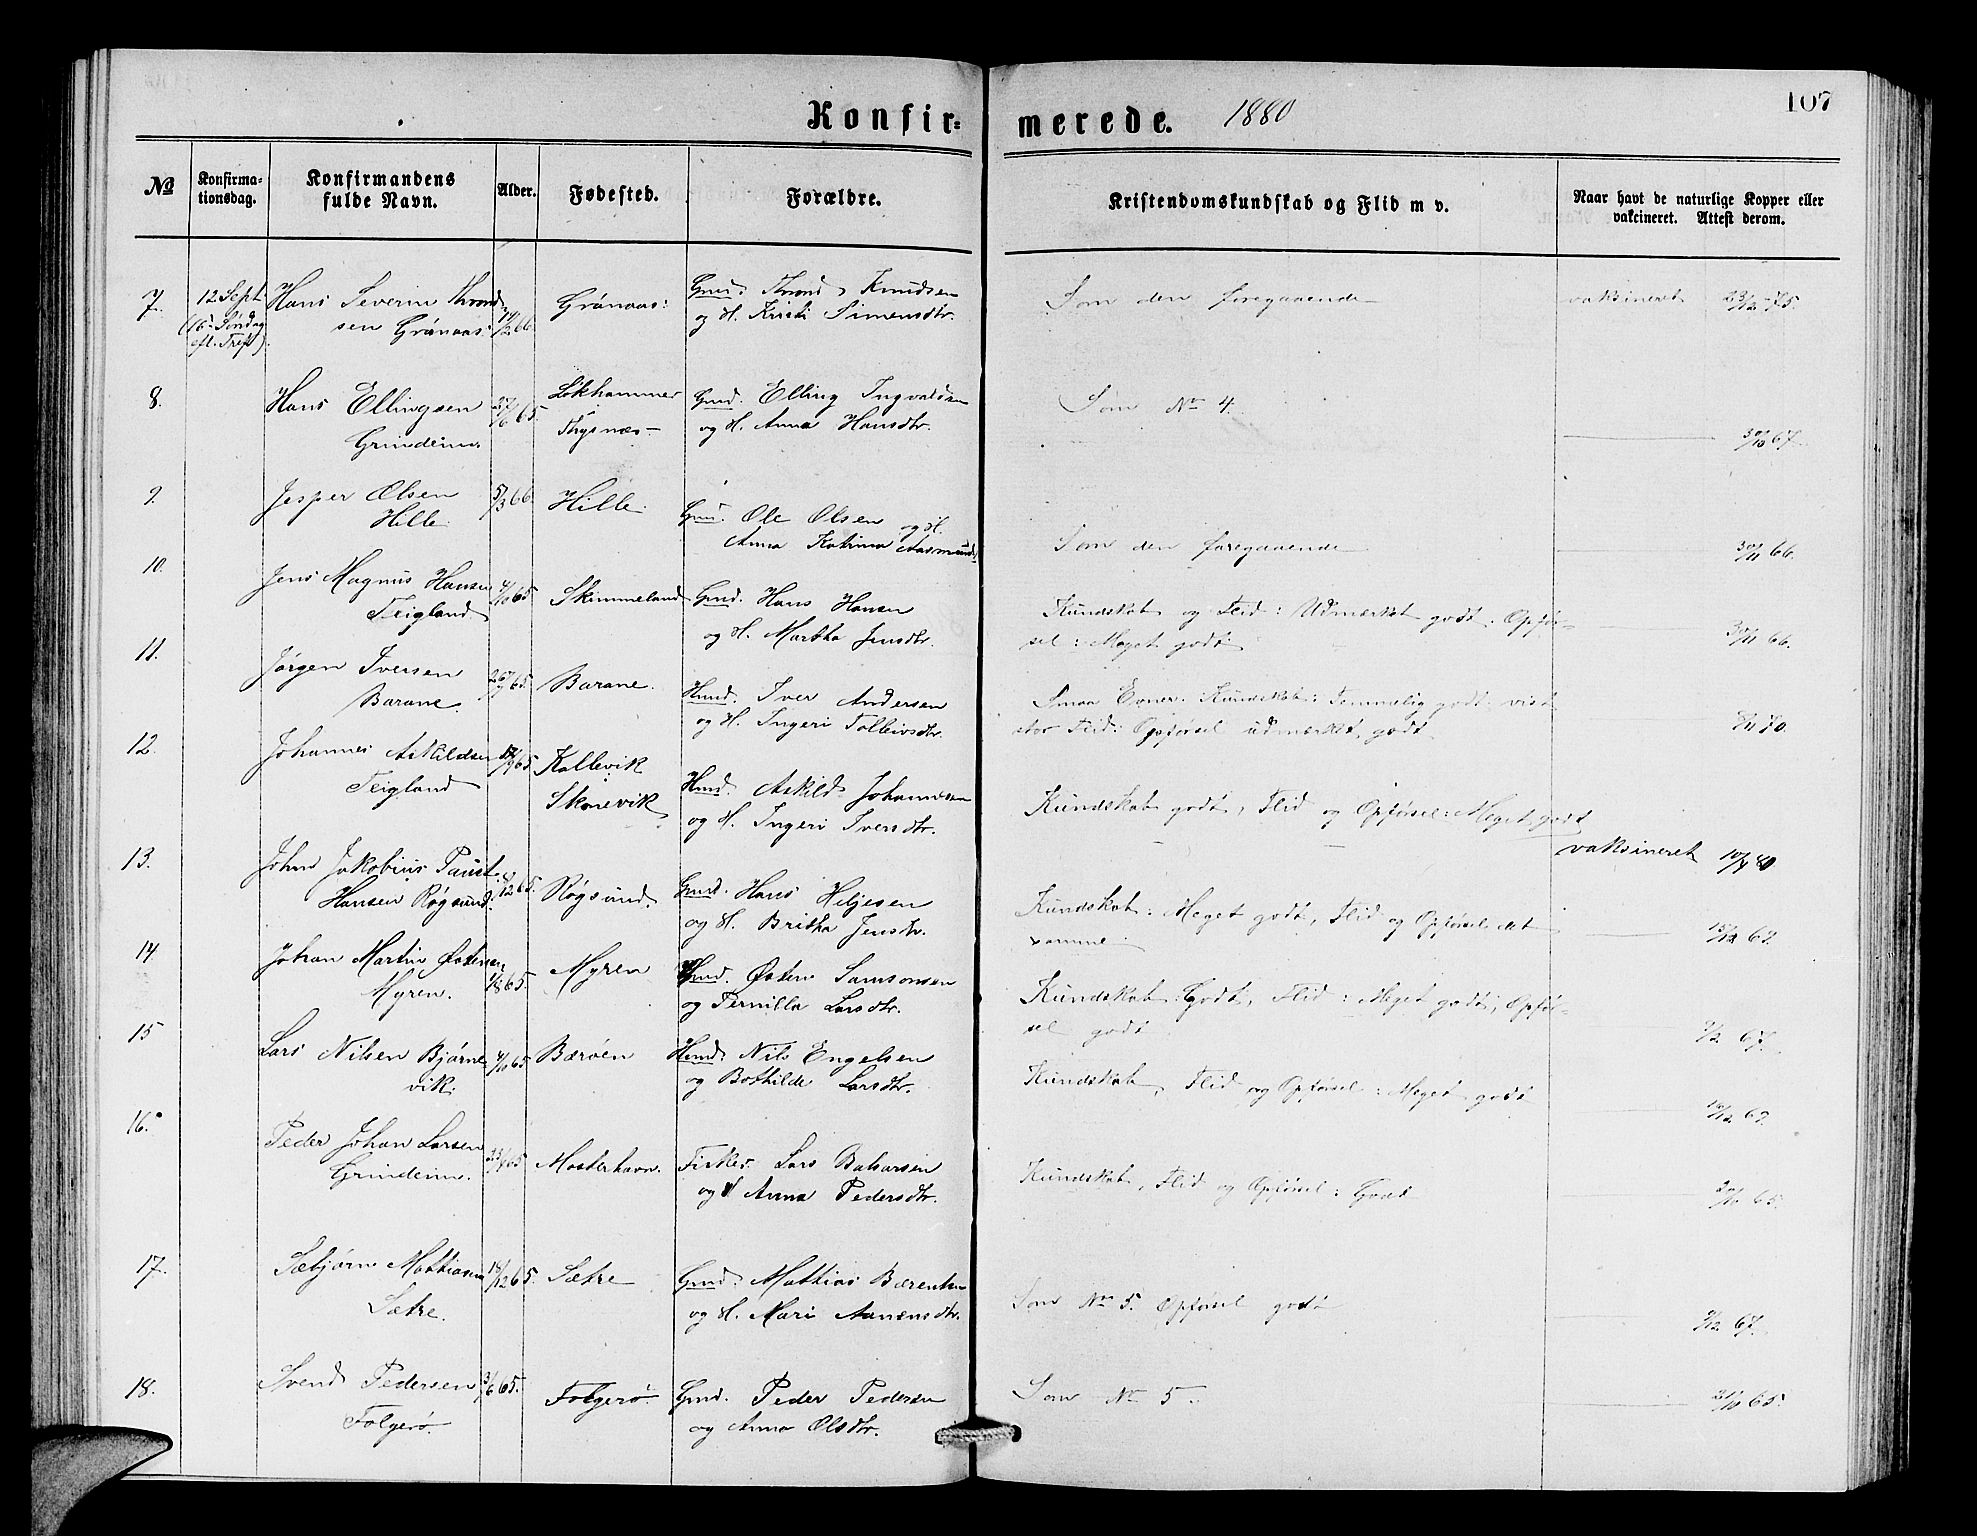 Konfir-
merede. 1880
107
№
Konfirma-
tionsdag.
Konfirmandens
fulde Navn.
Alder.
Fødested.
Forældre.
Kristendomskundskab og Flid m v.
Naar havt de naturlige Kopper eller
vakcineret. Attest derom.
7.
12 Sept.
(16. Søndag
eft. Tref.)
Hans Severin Thrond
sen Grønaas.
Grønaas.
Gmd. Thrond Knudsen
og H. Kristi Simensdtr.
Som den foregaaende
vaksineret 23/12-75.
8.
Hans Ellingsen
Grindeim.
65.
Løkhammer
Thysnæs
Gmd. Elling Ingvaldsen
og H. Anna Hansdtr.
Som No 4.
30/10 67.
9.
Jesper Olsen
Hille.
5/3 66.
Hille.
Gmd. Ole Olsen og H.
Anna Katrina Aasmunds
Som den foregaaende
30/11 66.
10.
Jens Magnus Hansen
Teigland.
65
Skimmeland
Gmd. Hans Hansen
og H. Martha Jensdtr.
Kundskab og Flid: Udmærket godt. Opfør-
sel: Meget godt.
30/11 66.
11.
Jørgen Iversen
Barane.
65.
Barane.
Hmd. Iver Andersen
og H. Ingeri Tolleivsdtr.
Smaa Evner. Kundskab: Temmelig godt. vist
stor Flid: Opførsel udmærket godt.
70.
12.
Johannes Askildsen
Teigland
65.
Kallevik
Skonevik
Hmd. Askild Johannesen
og H. Ingeri Iversdtr.
Kundskab godt, Flid og Opførsel: Meget godt
vaksineret 80
13.
Johan Jakobius Faust.
Hansen Røgsund.
8/12 65.
Røgsund.
Gmd. Hans Heljesen
og H. Britha Jensdtr.
Kundskab: Meget godt, Flid og Opførsel det
samme
67.
14.
Johan Martin Østensen
Myren.
1/8 65.
Myren
Gmd. Østen Samsonsen
og Pernilla Larsdtr.
Kundskab: Godt, Flid: Meget godt, Opfør-
sel godt
67.
15
Lars Nilsen Bjørne
vik.
65
Bærøen
Hmd: Nils Engelsen
og Bothilde Larsdtr.
Kundskab, Flid og Opførsel: Meget godt
67.
16.
Peder Johan Larsen
Grindeim.
65
Mosterhavn.
Fisker Lars Balsarsen
og H Anna Pedersdtr.
Kundskab, Flid og Opførsel: Godt
65.
17.
Sæbjørn Mathiasen
Sætre.
18/12 65.
Sætre
Gmd. Mathias Bærentsen
og H. Mari Aanensdtr.
Som No 5. Opførsel godt
67.
18.
Svend Pedersen
Folgerø.
3/6 65.
Folgerø
Gmd. Peder Pedersen
og Anna Olsdtr.
Som No 5
21/10 65.